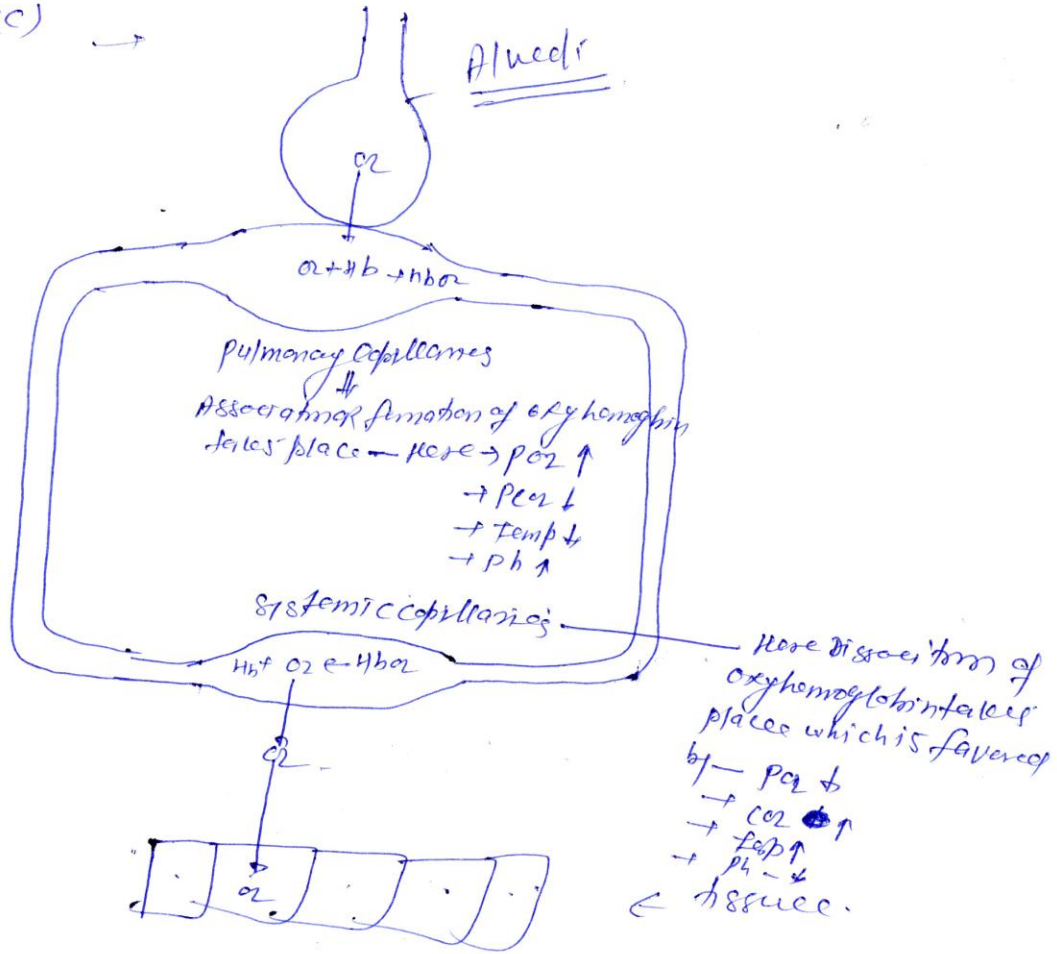 c)
Alveoli
O2
O2+Hb→HbO2
Pulmonary Capillaries
Association & formation of oxyhemoglobin
takes place — Here → PO2 ↑
→ PCO2 ↓
→ Temp ↓
→ Ph ↑
Systemic capillaries
Hb+ O2 ← HbO2
Here Dissocition of
oxyhemoglobin takes
place which is favored
by — PO2 ↓
→ CO2 ↑
→ ↑
→ Ph - ↓
O2
O2
← tissue.